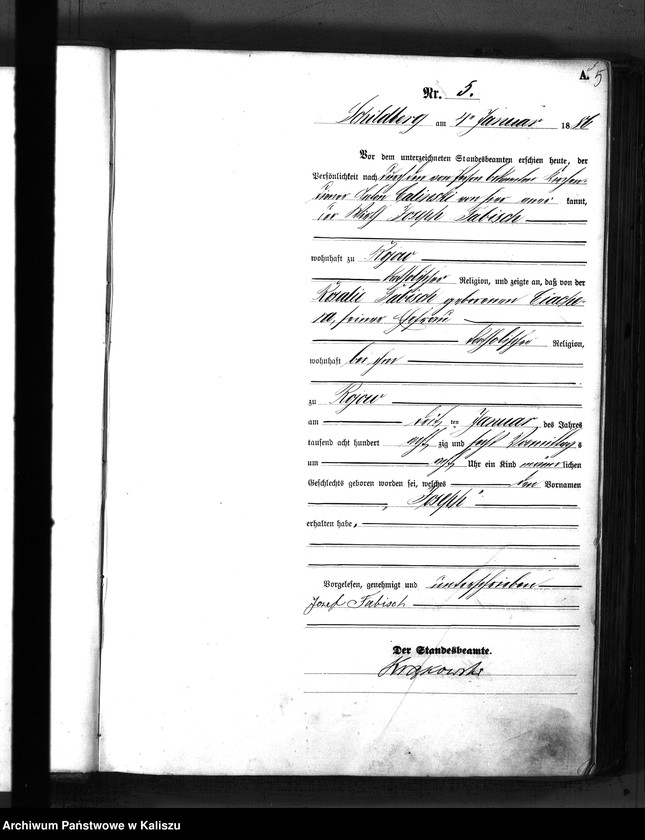 A. 5
Nr. 5.
Schildberg am 4ten Januar 1886
Vor dem unterzeichneten Standesbeamten erschien heute, der
Persönlichkeit nach
kannt,
der Joseph Fabisch
wohnhaft zu Rojow
katholischer Religion, und zeigte an, daß von der
Rosalie Fabisch geborenen
seiner Ehefrau
katholischer Religion,
wohnhaft bei ihm
zu Rojow
am ten Januar des Jahres
tausend acht hundert achtzig und sechs Vormittags
um acht Uhr ein Kind männlichen
Geschlechts geboren worden sei, welches den Vornamen
"Joseph"
erhalten habe,
Vorgelesen, genehmigt und unterschrieben
Josef Fabisch
Der Standesbeamte.
Krakowski
Archiwum Państwowe w Kaliszu